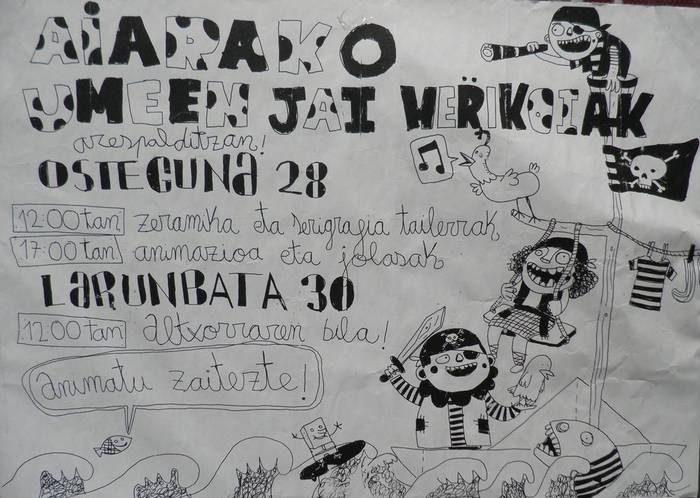 AiARAKO
UMEEN JAI HERRIKOIAK
arespalditzan!
OSTEGUNA 28
12:00tan zeramika eta serigragia tailerrak
17:00tan animazioa eta jolasak
LARUNBATA 30
12:00tan altxorraren bila!
animatu zaitezte!